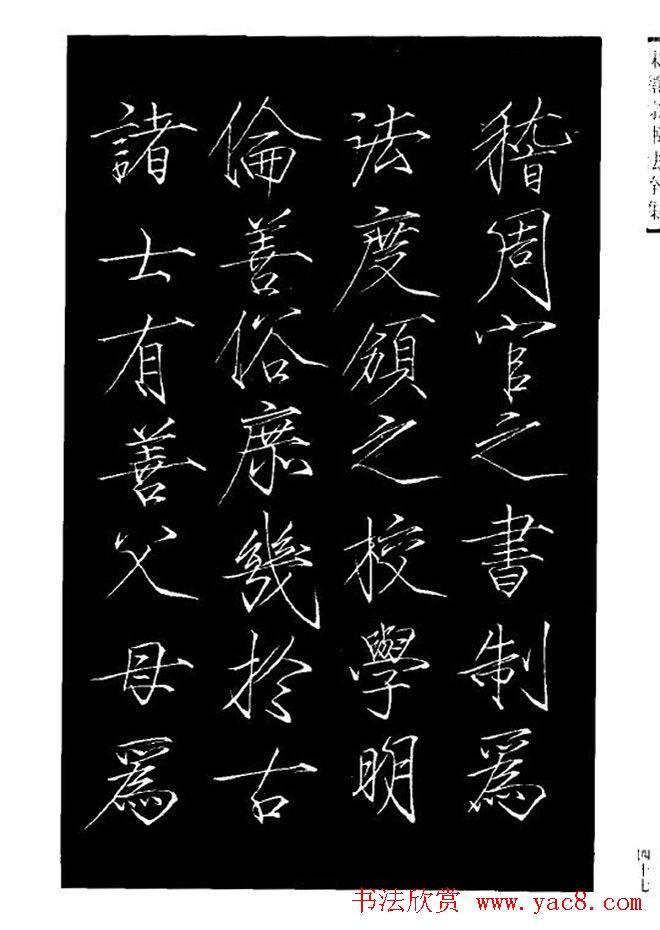 稽周官之書制為
法度頒之校學明
倫善俗庶幾於古
諸士有善父母為
四十七
书法欣赏 www.yac8.com